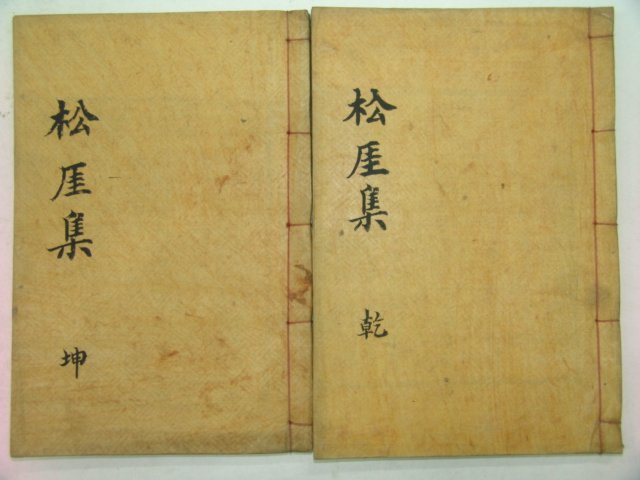 松厓集
乾
松厓集
坤